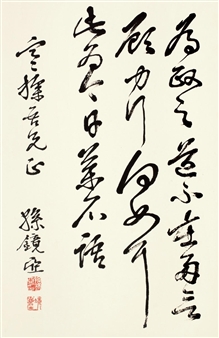 為政之道不在多言
顧力行何如耳
此為今日藥石語
寒操吾兄正
孫鏡亞